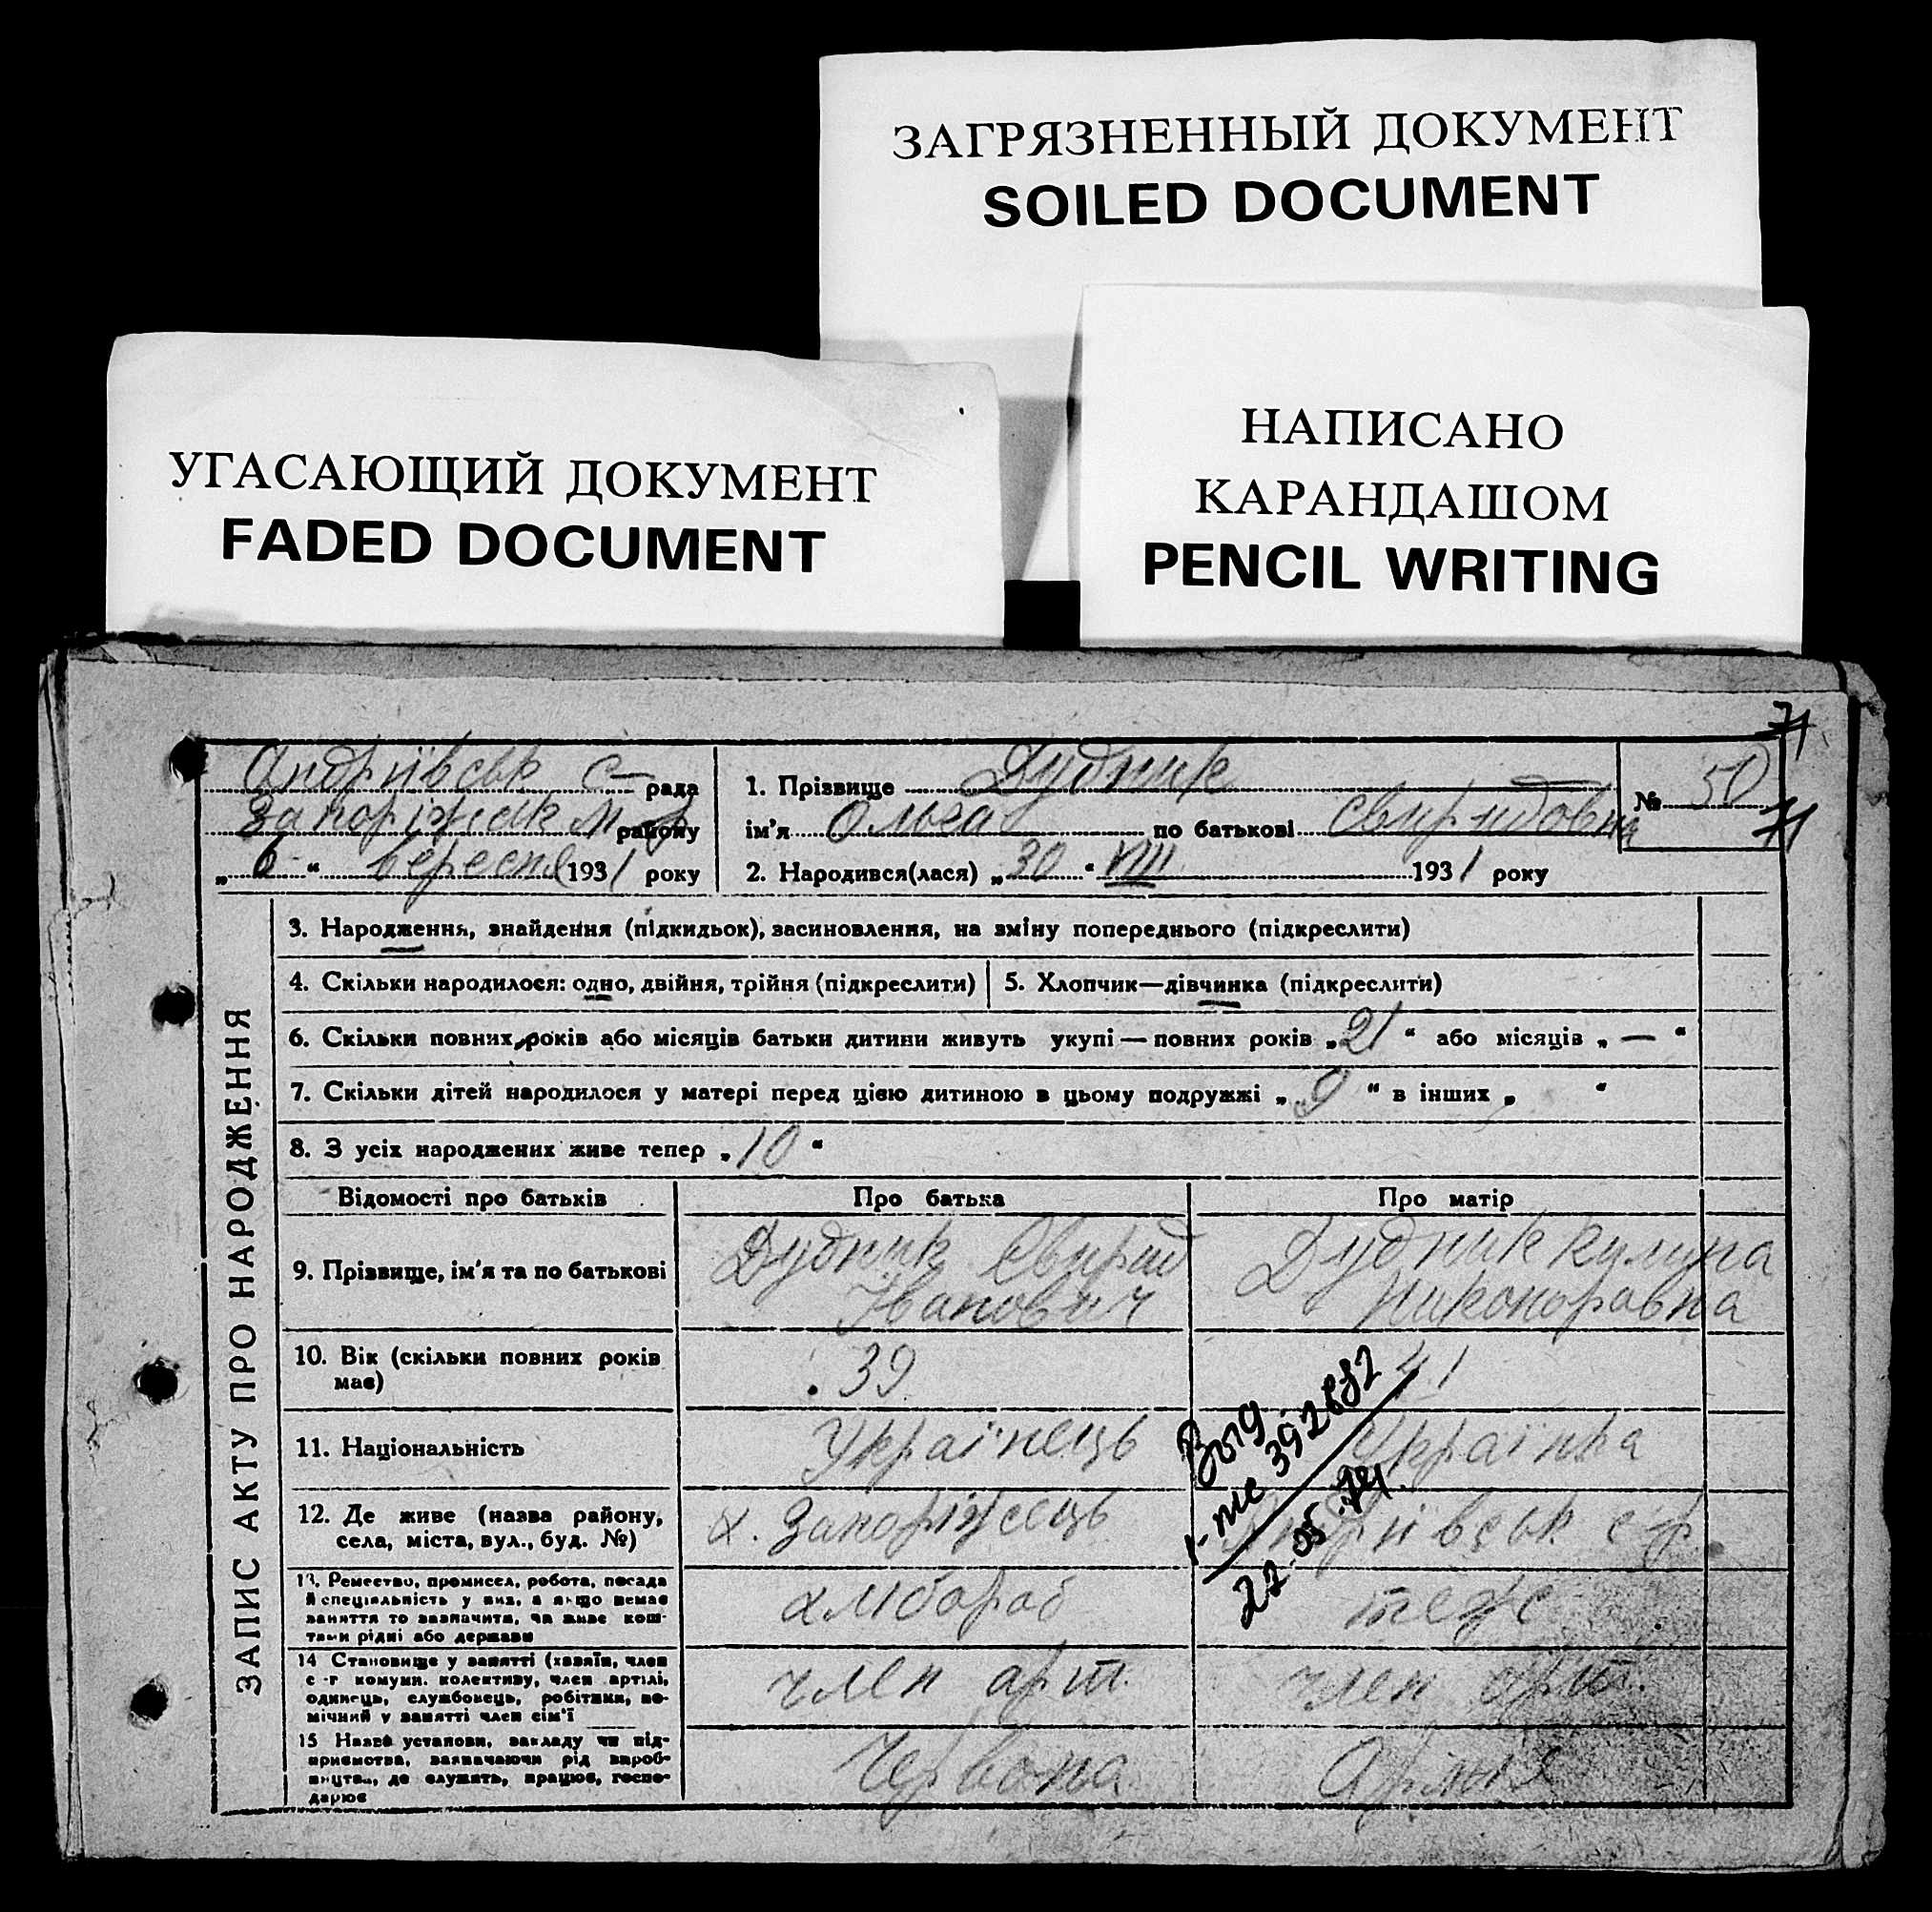 ЗАГРЯЗНЕННЫЙ ДОКУМЕНТ
SOILED DOCUMENT
НАПИСАНО
КАРАНДАШОМ
PENCIL WRITING
УГАСАЮЩИЙ ДОКУМЕНТ
FADED DOCUMENT
71
Андріївськ с— рада
Запоріжськ м-р району
„ 6 “ вересня 1931 року
1. Прізвище Дудник
ім'я Ольга по батькові Свиридовна
2. Народився(лася) „30“ VIII 1931 року
№ 50
71
ЗАПИС АКТУ ПРО НАРОДЖЕННЯ
3. Народження, знайдення (підкидьок), засиновлення, на зміну попереднього (підкреслити)
4. Скільки народилося: одно, двійня, трійня (підкреслити)
5. Хлопчик—дівчинка (підкреслити)
6. Скільки повних років або місяців батьки дитини живуть укупі — повних років „21“ або місяців „—“
7. Скільки дітей народилося у матері перед цією дитиною в цьому подружжі „9“ в інших „ “
8. З усіх народжених живе тепер „10“
Відомості про батьків
Про батька
Про матір
9. Прізвище, ім'я та по батькові
Дудник Свирид
Іванович
Дудник Килина
Никоноровна
10. Вік (скільки повних років
має)
39
41
11. Національність
Українець
Українка
12. Де живе (назва району,
села, міста, вул., буд. №)
х. Запоріжець
Андріївськ с-р.
13. Ремество, промисел, робота, посада
й спеціяльність у них, а якщо немає
заняття то зазначити, чи живе кош-
тами рідні або держави
хлібороб
теж
14 Становище у занятті (хазяїн, член
с.-г комуни. колективу, член артілі,
одинець, службовець, робітник, по-
мічний у занятті член сім'ї
член арт.
член арт.
15 Назва установи, закладу чи під-
приємства, зазначаючи рід вироб-
ництва, де служить, працює, госпо-
дарює
Червона
Армія
Выд
392682
22.05.74.